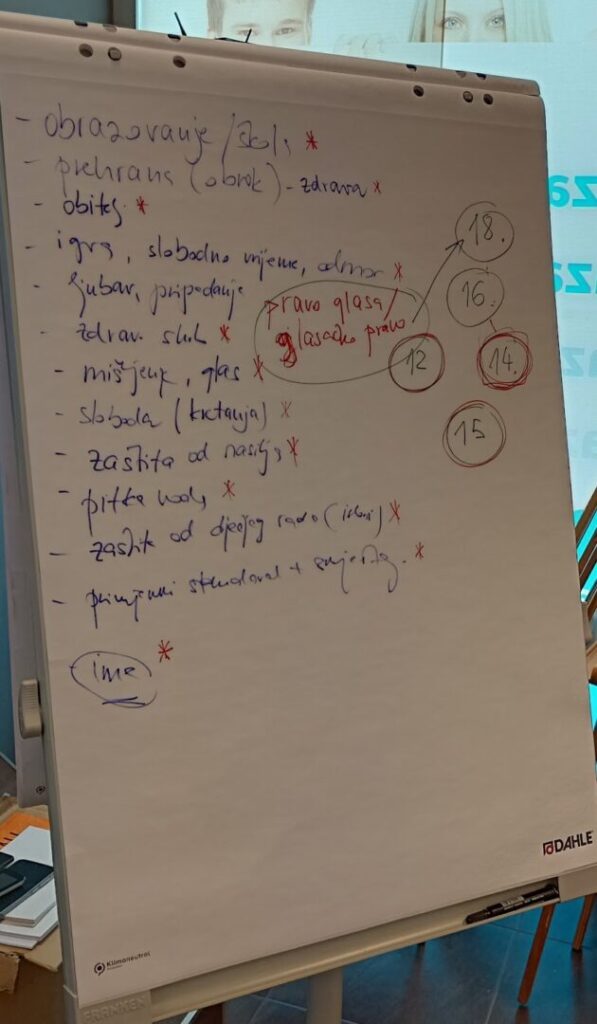 - obrazovanje / škol. *
- prehrana (obrok) - zdrava *
- obitelj *
- igra, slobodno vrijeme, odmor *
- ljubav, pripadanje
pravo glasa /
glasačko pravo
18.
16.
12
14.
15
- zdrav. skrb *
- mišljenje, glas *
- sloboda (kretanja) *
- zaštita od nasilja *
- pitka voda *
- zaštita od dječjeg rada *
- primjereni standard + smještaj. *
- ime *
DAHLE
Klimaneutral
FRANKEN
za
za